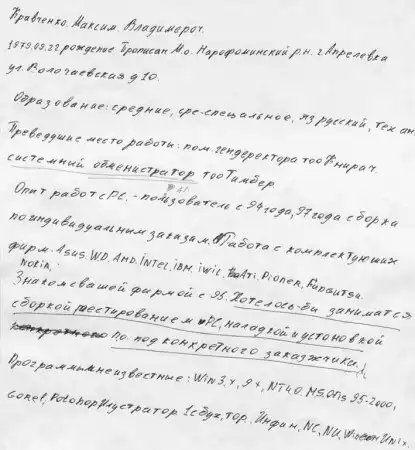 Кравченко. Максим. Владимероч.
1979.09.22 рождение Прописан М.о. Нарофоминский р.н. г Апрелевка
ул. Волочаевская д 10.
Образование: средние, сре-специальное, яз русский, тех ан
Преведущие место работы: пом. гендеректора тоо Книрач.
системний обменистратор тоо Тимбер
Опыт работ с PC. - пользователь с 94 года, 97 года сборка
по индивидуальным заказам. Работа с комплектующих
фирм. Asus, W.D. AmD. Intel. iBM. iwiL. Ati. Pionen, Funsutsu.
Nokia.
Знаком с вашей фирмой с 95. Хотелось-бы заниматся
сборкой тестированием PC, наладкой и установкой
По. под конкретного заказжчика.
Программы мне известные: Win 3.x, 9x, NT 4.0. MS. Ofis 95-2000,
Corel, Fotohop Илустратор 1с бух, тор. Инфин, NC, NU, Unix.